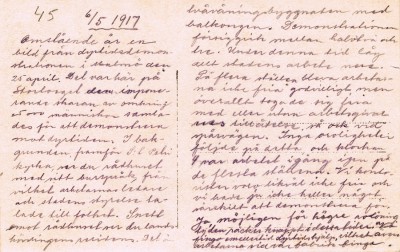 45
6/5 1917
Omstående är en
bild från dyrtidsdemon
strationen i Malmö den
25 april. Det var här på
Stortorget den impone
rande skaran av omkring
människor samla
des för att demonstrera
mot dyrtiden. I bak
grunden framför S:t Petri
kyrka ser du rådhuset
med sitt burspråk, från
vilket arbetarnas ledare
och stadens styrelse ta
lade till folket. Snett
emot rådhuset ser du lands
hövdingens residens. Det är
tvåvåningsbyggnaden med
balkongen. Demonstrationen
försiggick mellan halvtvå och
tre. Under denna tid låg
allt stadens arbete nere.
På flera ställen blevo arbetar
na icke fria godvilligt men
överallt togo de sig fria
med eller utan arbetsgivar
nes tillåtelse, så och vid
spårvägen. Inga oroligheter
följde på detta och klockan
3 var arbetet i gång igen på
de flesta ställena. Vi konto
rister voro likväl icke fria och
vi hade ju icke heller något
särskilt att demonstrera för